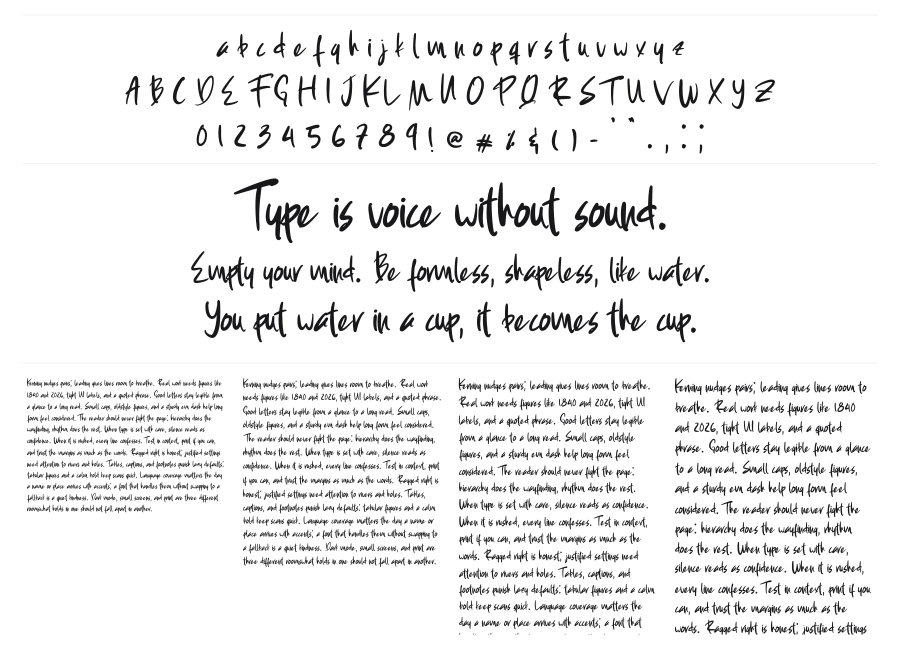 a b c d e f g h i j k l m n o p q r s t u v w x y z
A B C D E F G H I J K L M N O P Q R S T U V W X Y Z
0 1 2 3 4 5 6 7 8 9 ! @ # % & ( ) - ' " . , : ;
Type is voice without sound.
Empty your mind. Be formless, shapeless, like water.
You put water in a cup, it becomes the cup.
Kerning nudges pairs; leading gives lines room to breathe. Real work needs figures like
1840 and 2026, tight UI labels, and a quoted phrase. Good letters stay legible from
a glance to a long read. Small caps, oldstyle figures, and a sturdy em dash help long
form feel considered. The reader should never fight the page; hierarchy does the
wayfinding, rhythm does the rest. When type is set with care, silence reads as
confidence. When it is rushed, every line confesses. Test in context, print if you can,
and trust the margins as much as the words. Ragged right is honest; justified settings
need attention to rivers and holes. Tables, captions, and footnotes punish lazy defaults;
tabular figures and a calm hold keep scans quick. Language coverage matters the day
a name or place arrives with accents; a font that handles them without swapping to a
fallback is a quiet kindness. Dark mode, small screens, and print are three different
rooms; what holds in one should not fall apart in another.
Kerning nudges pairs; leading gives lines room to breathe. Real work
needs figures like 1840 and 2026, tight UI labels, and a quoted phrase.
Good letters stay legible from a glance to a long read. Small caps,
oldstyle figures, and a sturdy em dash help long form feel considered.
The reader should never fight the page; hierarchy does the wayfinding,
rhythm does the rest. When type is set with care, silence reads as
confidence. When it is rushed, every line confesses. Test in context, print
if you can, and trust the margins as much as the words. Ragged right is
honest; justified settings need attention to rivers and holes. Tables,
captions, and footnotes punish lazy defaults; tabular figures and a calm
hold keep scans quick. Language coverage matters the day a name or
place arrives with accents; a font that handles them without swapping to
a fallback is a quiet kindness. Dark mode, small screens, and print are
three different rooms; what holds in one should not fall apart in another.
Kerning nudges pairs; leading gives lines room to breathe.
Real work needs figures like 1840 and 2026, tight UI
labels, and a quoted phrase. Good letters stay legible
from a glance to a long read. Small caps, oldstyle
figures, and a sturdy em dash help long form feel
considered. The reader should never fight the page;
hierarchy does the wayfinding, rhythm does the rest.
When type is set with care, silence reads as confidence.
When it is rushed, every line confesses. Test in context,
print if you can, and trust the margins as much as the
words. Ragged right is honest; justified settings need
attention to rivers and holes. Tables, captions, and
footnotes punish lazy defaults; tabular figures and a calm
hold keep scans quick. Language coverage matters the
day a name or place arrives with accents; a font that
Kerning nudges pairs; leading gives lines room to
breathe. Real work needs figures like 1840
and 2026, tight UI labels, and a quoted
phrase. Good letters stay legible from a glance
to a long read. Small caps, oldstyle figures,
and a sturdy em dash help long form feel
considered. The reader should never fight the
page; hierarchy does the wayfinding, rhythm
does the rest. When type is set with care,
silence reads as confidence. When it is rushed,
every line confesses. Test in context, print if you
can, and trust the margins as much as the
words. Ragged right is honest; justified settings